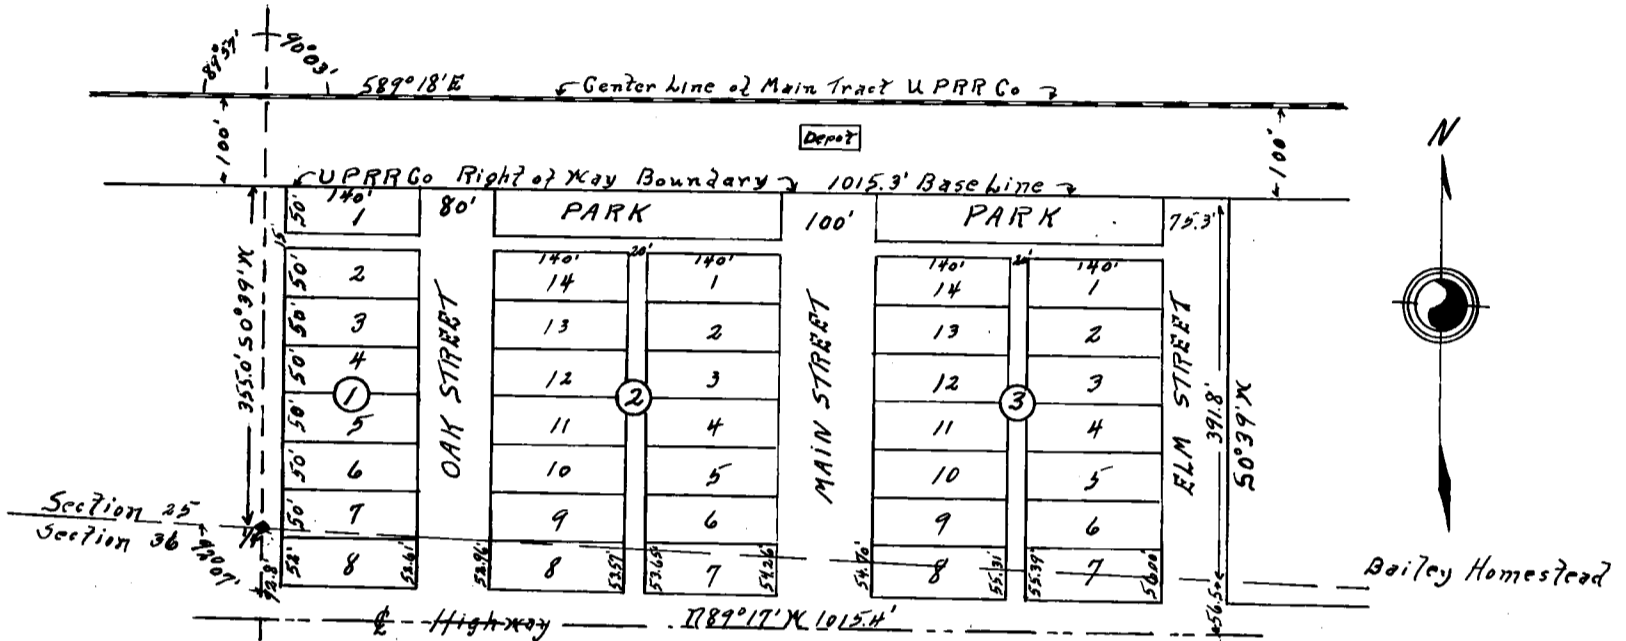 89°57'
90°03'
S89°18'E
Center Line of Main Tract UPRR Co
N
100'
Depot
100'
UPRRCo Right of Way Boundary
1015.3' Base Line
50'
140'
1
80'
PARK
100'
PARK
75.3'
15'
355.0' S0°39'W
50'
2
50'
3
50'
4
1
50'
5
50'
6
50'
7
52'
8
52.61'
OAK STREET
140'
20'
140'
14
1
13
2
12
3
2
11
4
10
5
9
6
52.96'
8
53.57'
53.65'
7
54.26'
MAIN STREET
140'
20'
140'
14
1
13
2
12
3
3
11
4
10
5
9
6
54.70'
8
55.31'
55.39'
7
56.00'
ELM STREET
391.8'
S0°39'W
56.50'
Section 25
Section 36
92°07'
1/4
Bailey Homestead
℄ Highway
N89°17'W 1015.4'